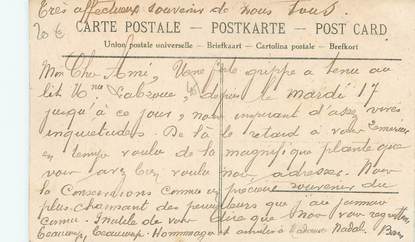 Très affectueux souvenir de nous tous.
20 €
CARTE POSTALE - POSTKARTE - POST CARD
Union postale universelle - Briefkaart - Cartolina postale - Brefkort
Mon Cher Ami, Une grippe a tenu au
lit Mme depuis le mardi 17
jusqu'à ce jour, nous inspirant d'assez vives
inquiétudes. De là le retard à vous remercier
en temps voulu de la magnifique plante que
vous avez bien voulu nous adresser. Nous
la conservons comme un précieux souvenir du
plus charmant des que j'ai jamais
connu. Inutile de vous dire que nous vous regrettons
beaucoup, beaucoup. Hommages et amitiés à Madame Nadal. Bien